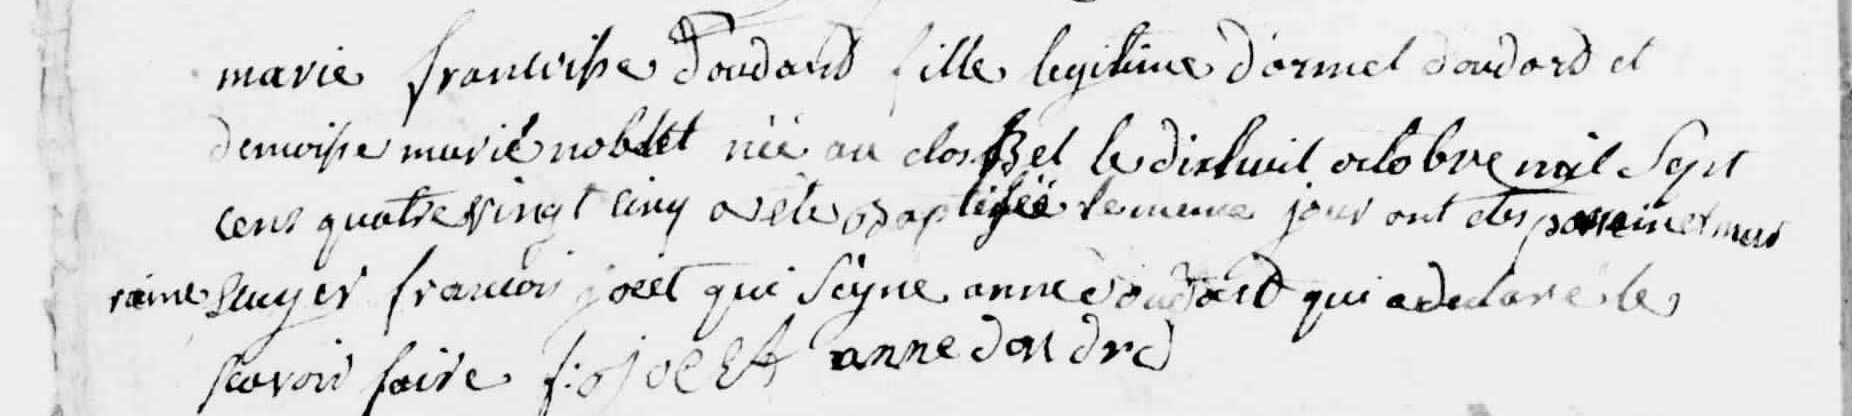 marie francoisse doudard fille legitime d'armel doudard et
demoisse marie noblet née au clos Bel le dixhuit octobre mil Sept
cens quatre vingt cinq a ete Baptisée le meme jour ont etes parein et mar
raine francois joet qui Signe anne doudard qui a declaré le
scavoir faire f: joeEt anne doudrd